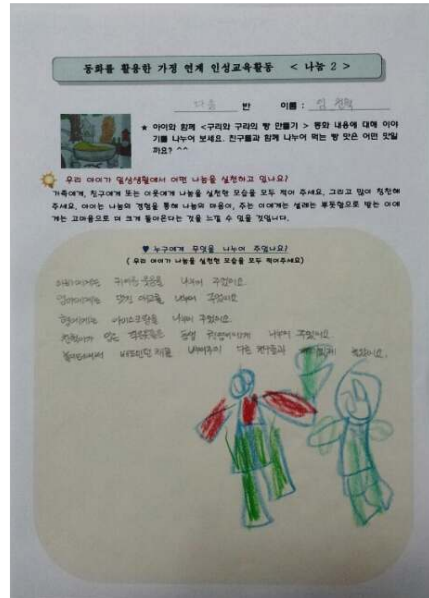 동화를 활용한 가정 연계 인성교육활동 < 나눔 2 >
다음 반 이름 :
★ 아이와 함께 <구리와 구라의 빵 만들기> 동화 내용에 대해 이야
기를 나누어 보세요. 친구들과 함께 나누어 먹는 빵 맛은 어떤 맛일
까요? ^^
우리 아이가 일상생활에서 어떤 나눔을 실천하고 있나요?
가족에게, 친구에게 또는 이웃에게 나눔을 실천한 모습을 모두 적어 주세요. 그리고 많이 칭찬해
주세요. 아이는 나눔의 경험을 통해 나눔의 마음이, 주는 이에게는 설레는 뿌듯함으로 받는 이에
게는 고마움으로 더 크게 돌아온다는 것을 느낄 수 있을 것입니다.
♥ 누구에게 무엇을 나누어 주었나요?
( 우리 아이가 나눔을 실천한 모습을 모두 적어주세요)
아빠에게는 귀여운 웃음을 나누어 주었어요.
엄마에게는 멋진 애교를 나누어 주었어요.
형에게는 아이스크림을 나누어 주었어요.
작은옷들은 동생 나누어 주었어요.
놀이터에서 다른 친구들과 했어요.